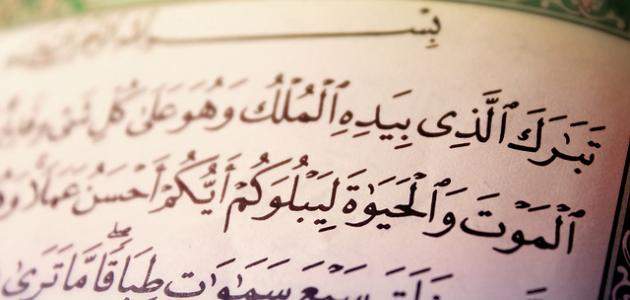 بِسْـــــ
تَبَـٰرَكَ ٱلَّذِى بِيَدِهِ ٱلْمُلْكُ وَهُوَ عَلَىٰ كُلِّ شَىْءٍ
ٱلْمَوْتَ وَٱلْحَيَوٰةَ لِيَبْلُوَكُمْ أَيُّكُمْ أَحْسَنُ عَمَلًا
سَبْعَ سَمَـٰوَٰتٍ طِبَاقًا مَّا تَرَىٰ